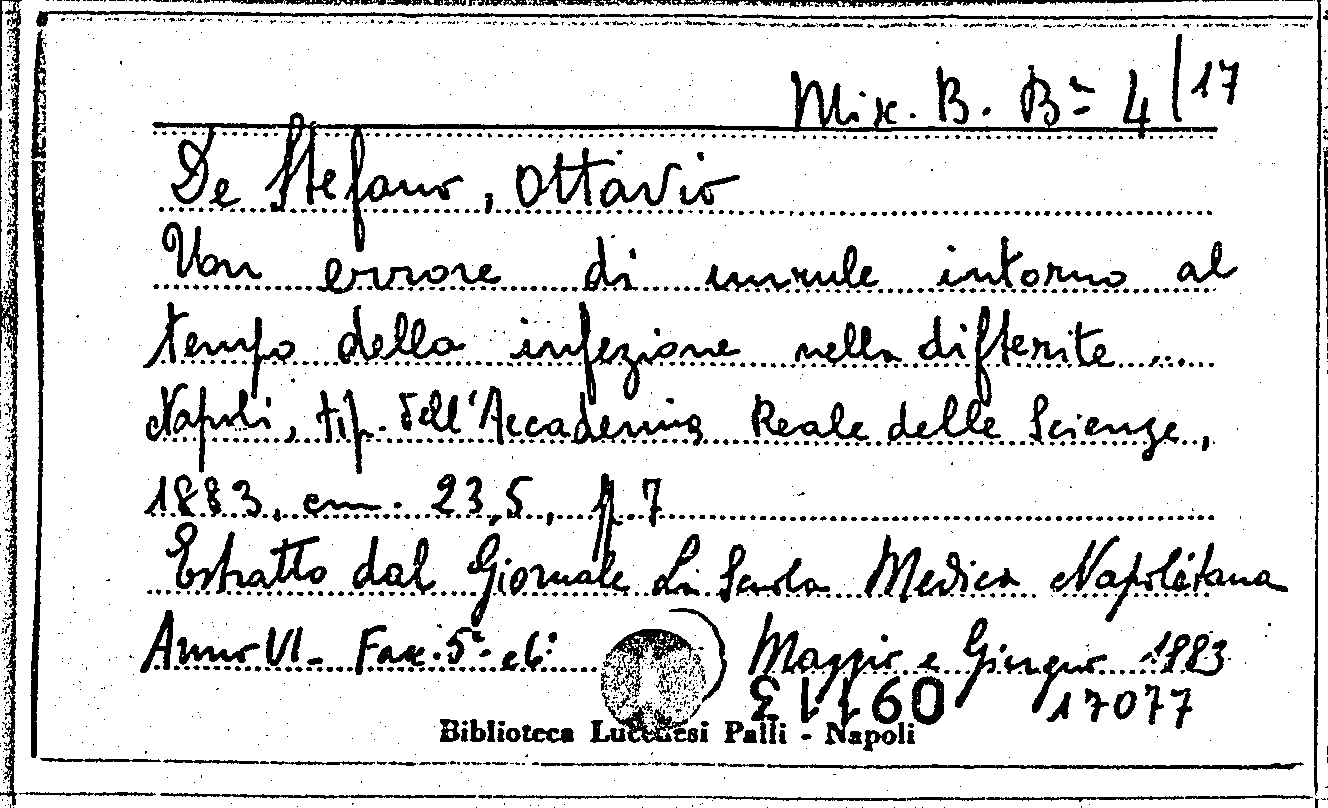 Misc. B. Bª 4/17
De Stefano, Ottavio
Von errore di intorno al
tempo della infezione nella difterite ...
Napoli, tip. dell'Accademia Reale delle Scienze,
1883, cm. 23,5, p. 7
Estratto dal Giornale La Scuola Medica Napoletana
Anno VI - Fasc. 5º e 6º Maggio e Giugno 1883
17077
Biblioteca Lucchesi Palli - Napoli